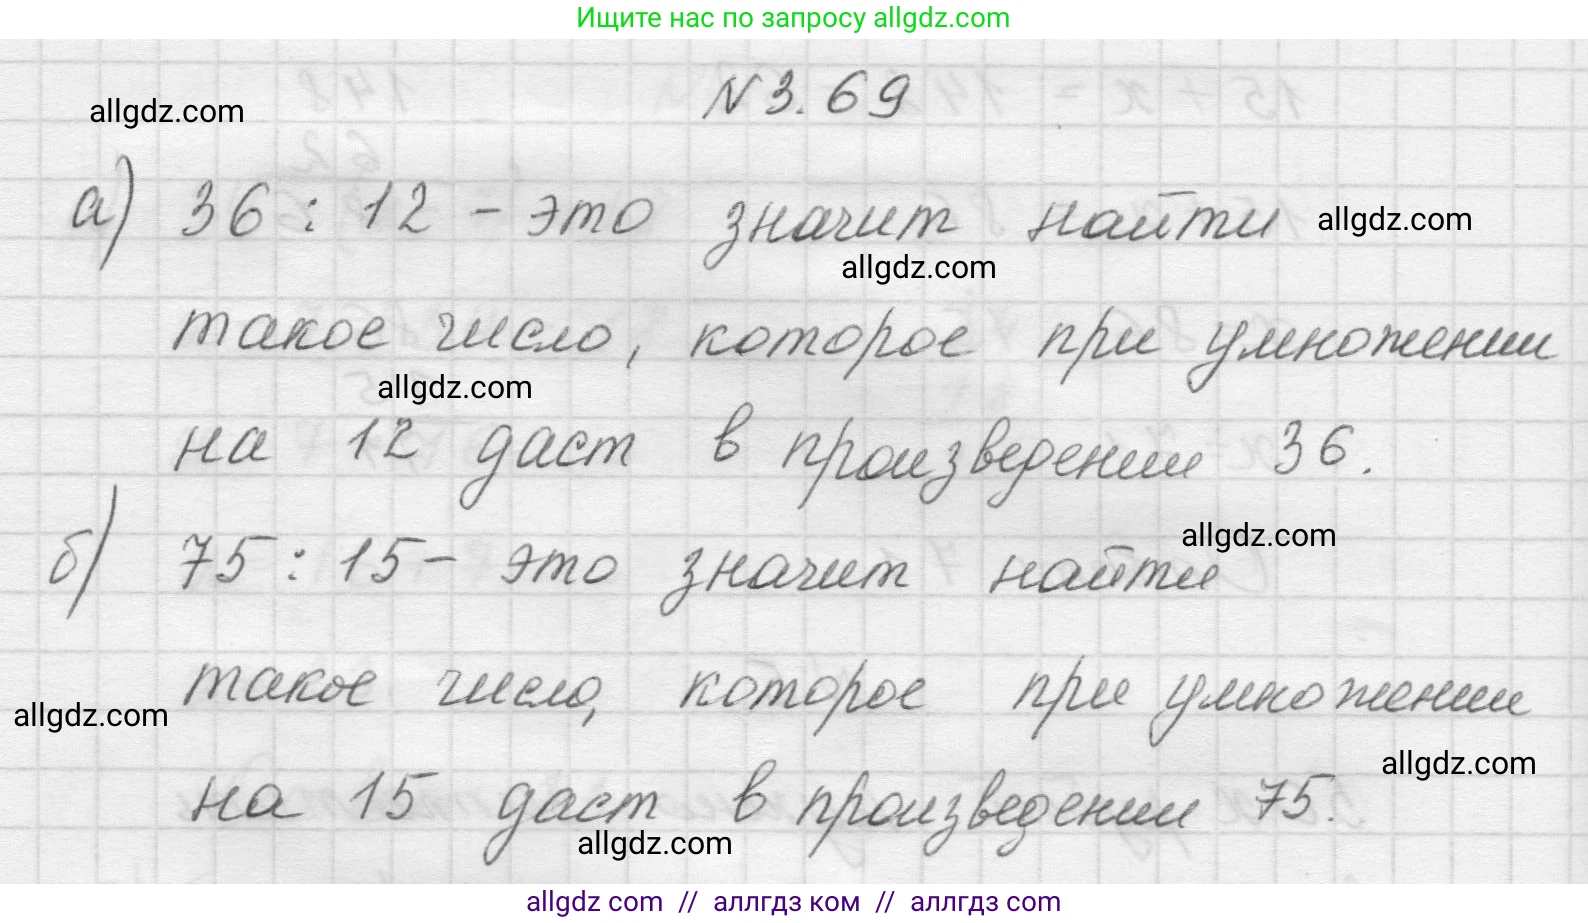 Ищите нас по запросу allgdz.com
№3.69
allgdz.com
а) 36 : 12 - это значит найти
allgdz.com
allgdz.com
такое число, которое при умножении
allgdz.com
на 12 даст в произведении 36.
б) 75 : 15 - это значит найти
allgdz.com
такое число, которое при умножении
allgdz.com
allgdz.com
на 15 даст в произведении 75.
allgdz.com
allgdz com // аллгдз ком // аллгдз com